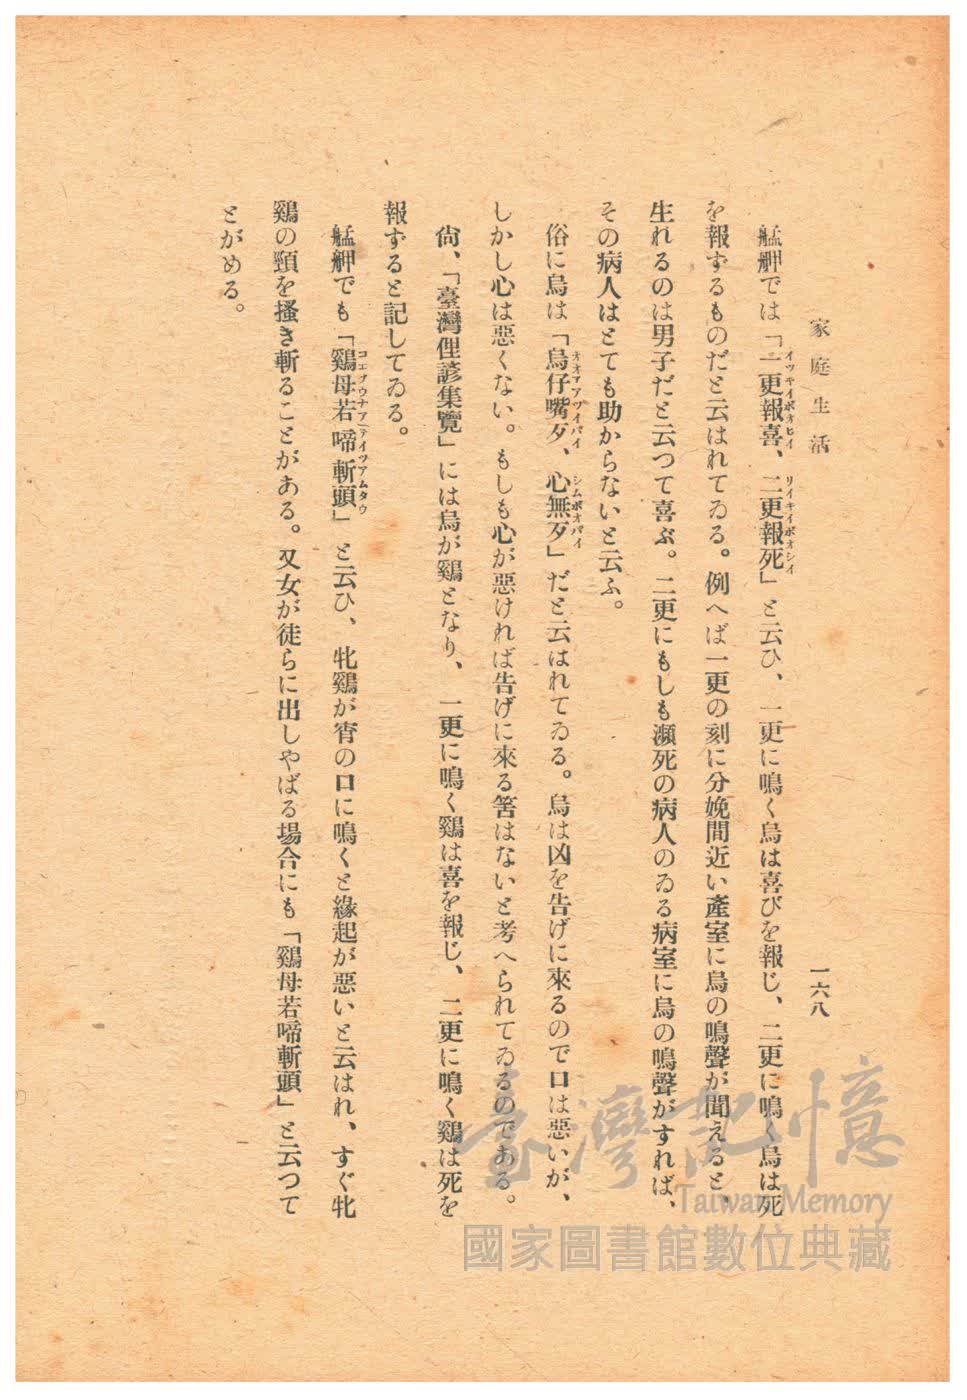 家庭生活
一六八
艋舺では「一更報喜、二更報死」と云ひ、一更に鳴く烏は喜びを報じ、二更に鳴く烏は死
イツキイポオヒイ
リイキイポオシイ
を報ずるものだと云はれてゐる。例へば一更の刻に分娩間近い產室に烏の鳴聲が聞えると、
生れるのは男子だと云つて喜ぶ。二更にもしも瀕死の病人のゐる病室に烏の鳴聲がすれば、
その病人はとても助からないと云ふ。
俗に烏は「烏仔嘴歹、心無歹」だと云はれてゐる。烏は凶を告げに來るので口は惡いが、
オオアアツイパイ
シムボオパイ
しかし心は惡くない。もしも心が惡ければ吿げに來る筈はないと考へられてゐるのである。
尙、「臺灣俚諺集覽」には烏が鷄となり、一更に鳴く鷄は喜を報じ、二更に鳴く鷄は死を
報ずると記してゐる。
艋舺でも「鷄母若啼斬頭」と云ひ、牝鷄が宵の口に鳴くと緣起が惡いと云はれ、すぐ牝
鷄の頸を搔き斬ることがある。又女が徒らに出しやばる場合にも「鷄母若啼斬頭」と云つて
とがめる。
臺灣記憶
Taiwan Memory
國家圖書館數位典藏